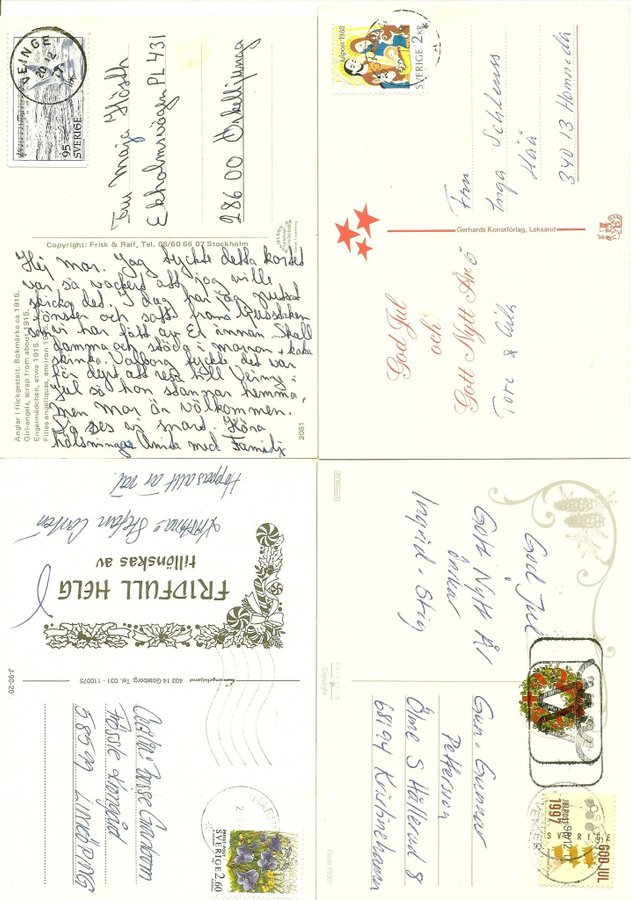 VEINGE
20 12
95
SVERIGE
Fru Maja Hösth
Ekholmsvägen PL 431
28600 Örkelljunga
Copyright: Frisk & Ralf, Tel. 08/60 66 07 Stockholm
Hej mor. Jag tyckte detta kortet
var så vackert att jag ville
skicka det. I dag har jag putsat
fönster och satt fram ljusstaken
som vi har fått av Er innan. Skall
damma och städa i morgon, koka
skinka. tyckte det var
för dyrt att resa till
jul så hon stannar hemma,
men Mor är välkommen.
Vi ses ju snart. Kära
hälsningar Anita med Familj
Änglar i flickgestalt. Bokmärke ca 1915.
Girl-angels, scrap from about 1915.
Engelmädchen, etwa 1915.
Filles angéliques, environ 1915.
2081
Julpost 1980
SVERIGE 2 KR
Fru
Inga
Håå
340 13 Hamneda
Gerhards Konstförlag, Leksand
God Jul
och
Gott Nytt År
Tore &
Hoppas allt är väl
FRIDFULL HELG
tillönskas av
J-90-20
403 14 Göteborg. Tel. 031 - 110075
58599 LINKÖPING
SVERIGE 2.60
God Jul
Gott Nytt År
önskar
Ingrid o Stig
Copyright
Gun o Gunnar
Pettersson
Ölme S Hällerud 8
68194 Kristinehamn
JULPOST
1997
SVERIGE
GOD JUL